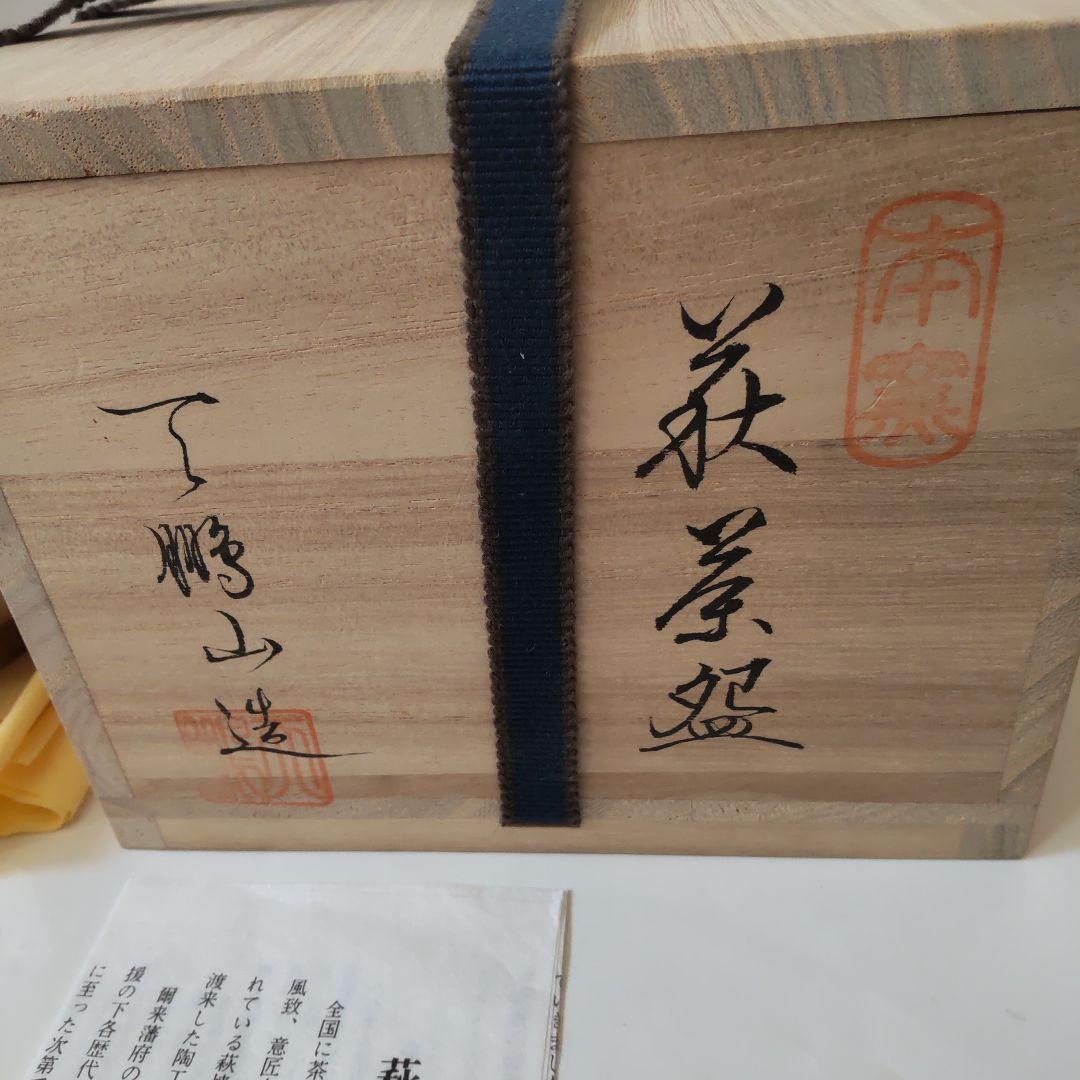 本窯
萩茶盌
天鵬山造
萩
全国に茶
風致、意匠
れている萩焼
渡来した陶工
爾来藩府の
援の下各歴代
に至った次第